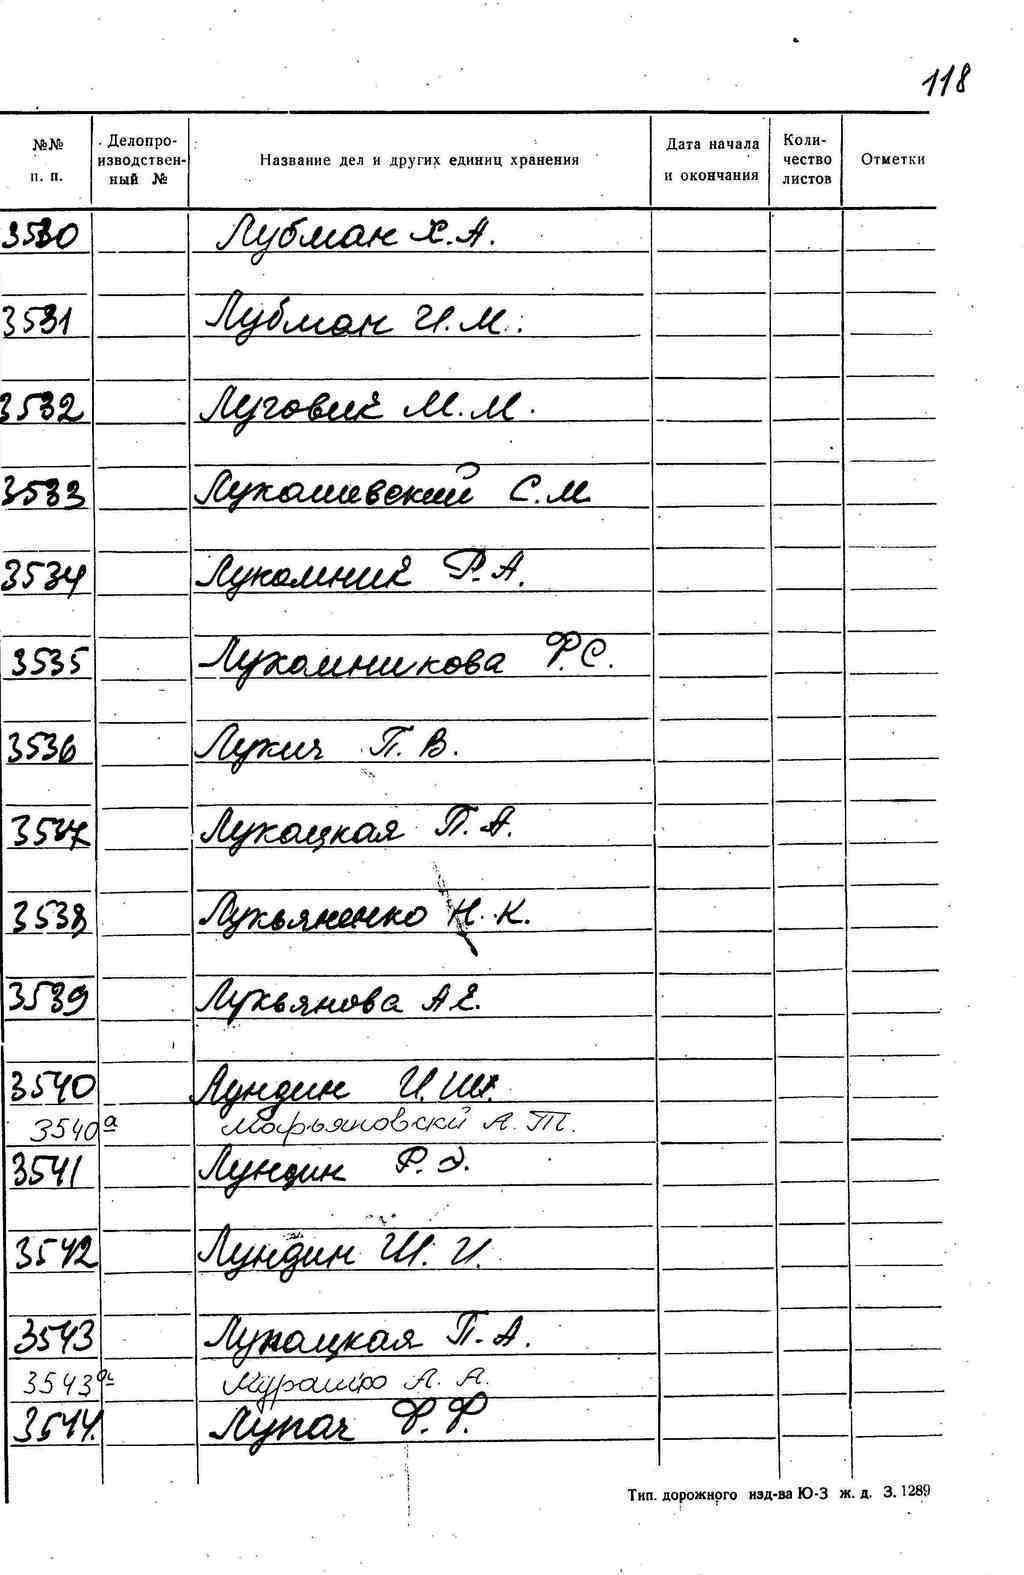 118
№№ п. п. Делопроизводственный № Название дел и других единиц хранения Дата начала и окончания Количество листов Отметки
3530 Лубман Х.А.
3531 Лубман И.М.
3532 Луговик М.М.
3533 Лукашевский С.М
3534 Лукомник Р.А.
3535 Лукомникова Р.С.
3536 Лукич П.В.
3537 Лукацкая П.А.
3538 Лукьяненко Н.К.
3539 Лукьянова А.Е.
3540 Лундин И.Ш.
3540 а Марьяновски А.Т.
3541 Лундин Р.Э.
3542 Лундин Ш.И.
3543 Лупацкая П.А.
3543 а Мурашко А.А.
3544. Лупач Ф.Ф.
Тип. дорожного изд-ва Ю-З ж. д. З. 1289